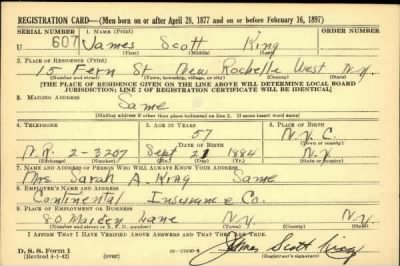 REGISTRATION CARD—(Men born on or after April 28, 1877 and on or before February 16, 1897)
SERIAL NUMBER 1. NAME (Print) ORDER NUMBER
U 607 James Scott King
(First) (Middle) (Last)
2. PLACE OF RESIDENCE (Print)
15 Fern St New Rochelle West N.Y.
(Number and street) (Town, township, village, or city) (County) (State)
[THE PLACE OF RESIDENCE GIVEN ON THE LINE ABOVE WILL DETERMINE LOCAL BOARD
JURISDICTION; LINE 2 OF REGISTRATION CERTIFICATE WILL BE IDENTICAL]
3. MAILING ADDRESS
Same
(Mailing address if other than place indicated on line 2. If same insert word same)
4. TELEPHONE 5. AGE IN YEARS 6. PLACE OF BIRTH
57 N.Y.C.
DATE OF BIRTH (Town or county)
N.R. 2-3207 Sept 1884 N.Y.
(Exchange) (Number) (Mo.) (Day) (Yr.) (State or country)
7. NAME AND ADDRESS OF PERSON WHO WILL ALWAYS KNOW YOUR ADDRESS
Mrs Sarah A. King Same
8. EMPLOYER'S NAME AND ADDRESS
Continental Insurance Co.
9. PLACE OF EMPLOYMENT OR BUSINESS
80 Maiden Lane N.Y. N.Y.
(Number and street or R. F. D. number) (Town) (County) (State)
I AFFIRM THAT I HAVE VERIFIED ABOVE ANSWERS AND THAT THEY ARE TRUE.
D. S. S. Form 1
(Revised 4-1-42) (over) James Scott King
(Registrant's signature)